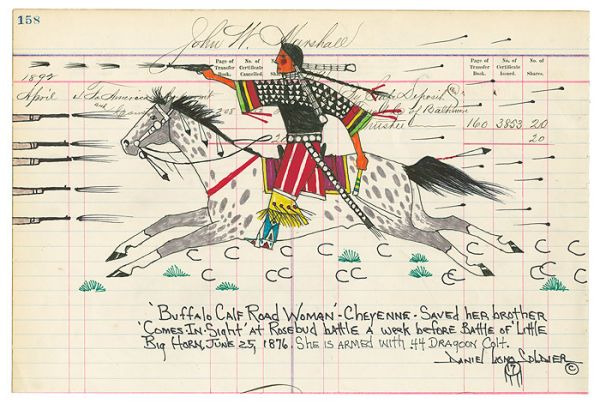 158
John W. Marshall
Page of Transfer Book.
No. of Certificate Cancelled.
Page of Transfer Book.
No. of Certificate Issued.
No. of Shares.
1892
April
Safe Deposit
of Baltimore
160 3853 20
20
'Buffalo Calf Road Woman' - Cheyenne - Saved her brother
'Comes In Sight' at Rosebud battle a week before Battle of Little
Big Horn, June 25, 1876. She is armed with .44 Dragoon Colt.
Daniel Long Soldier
©